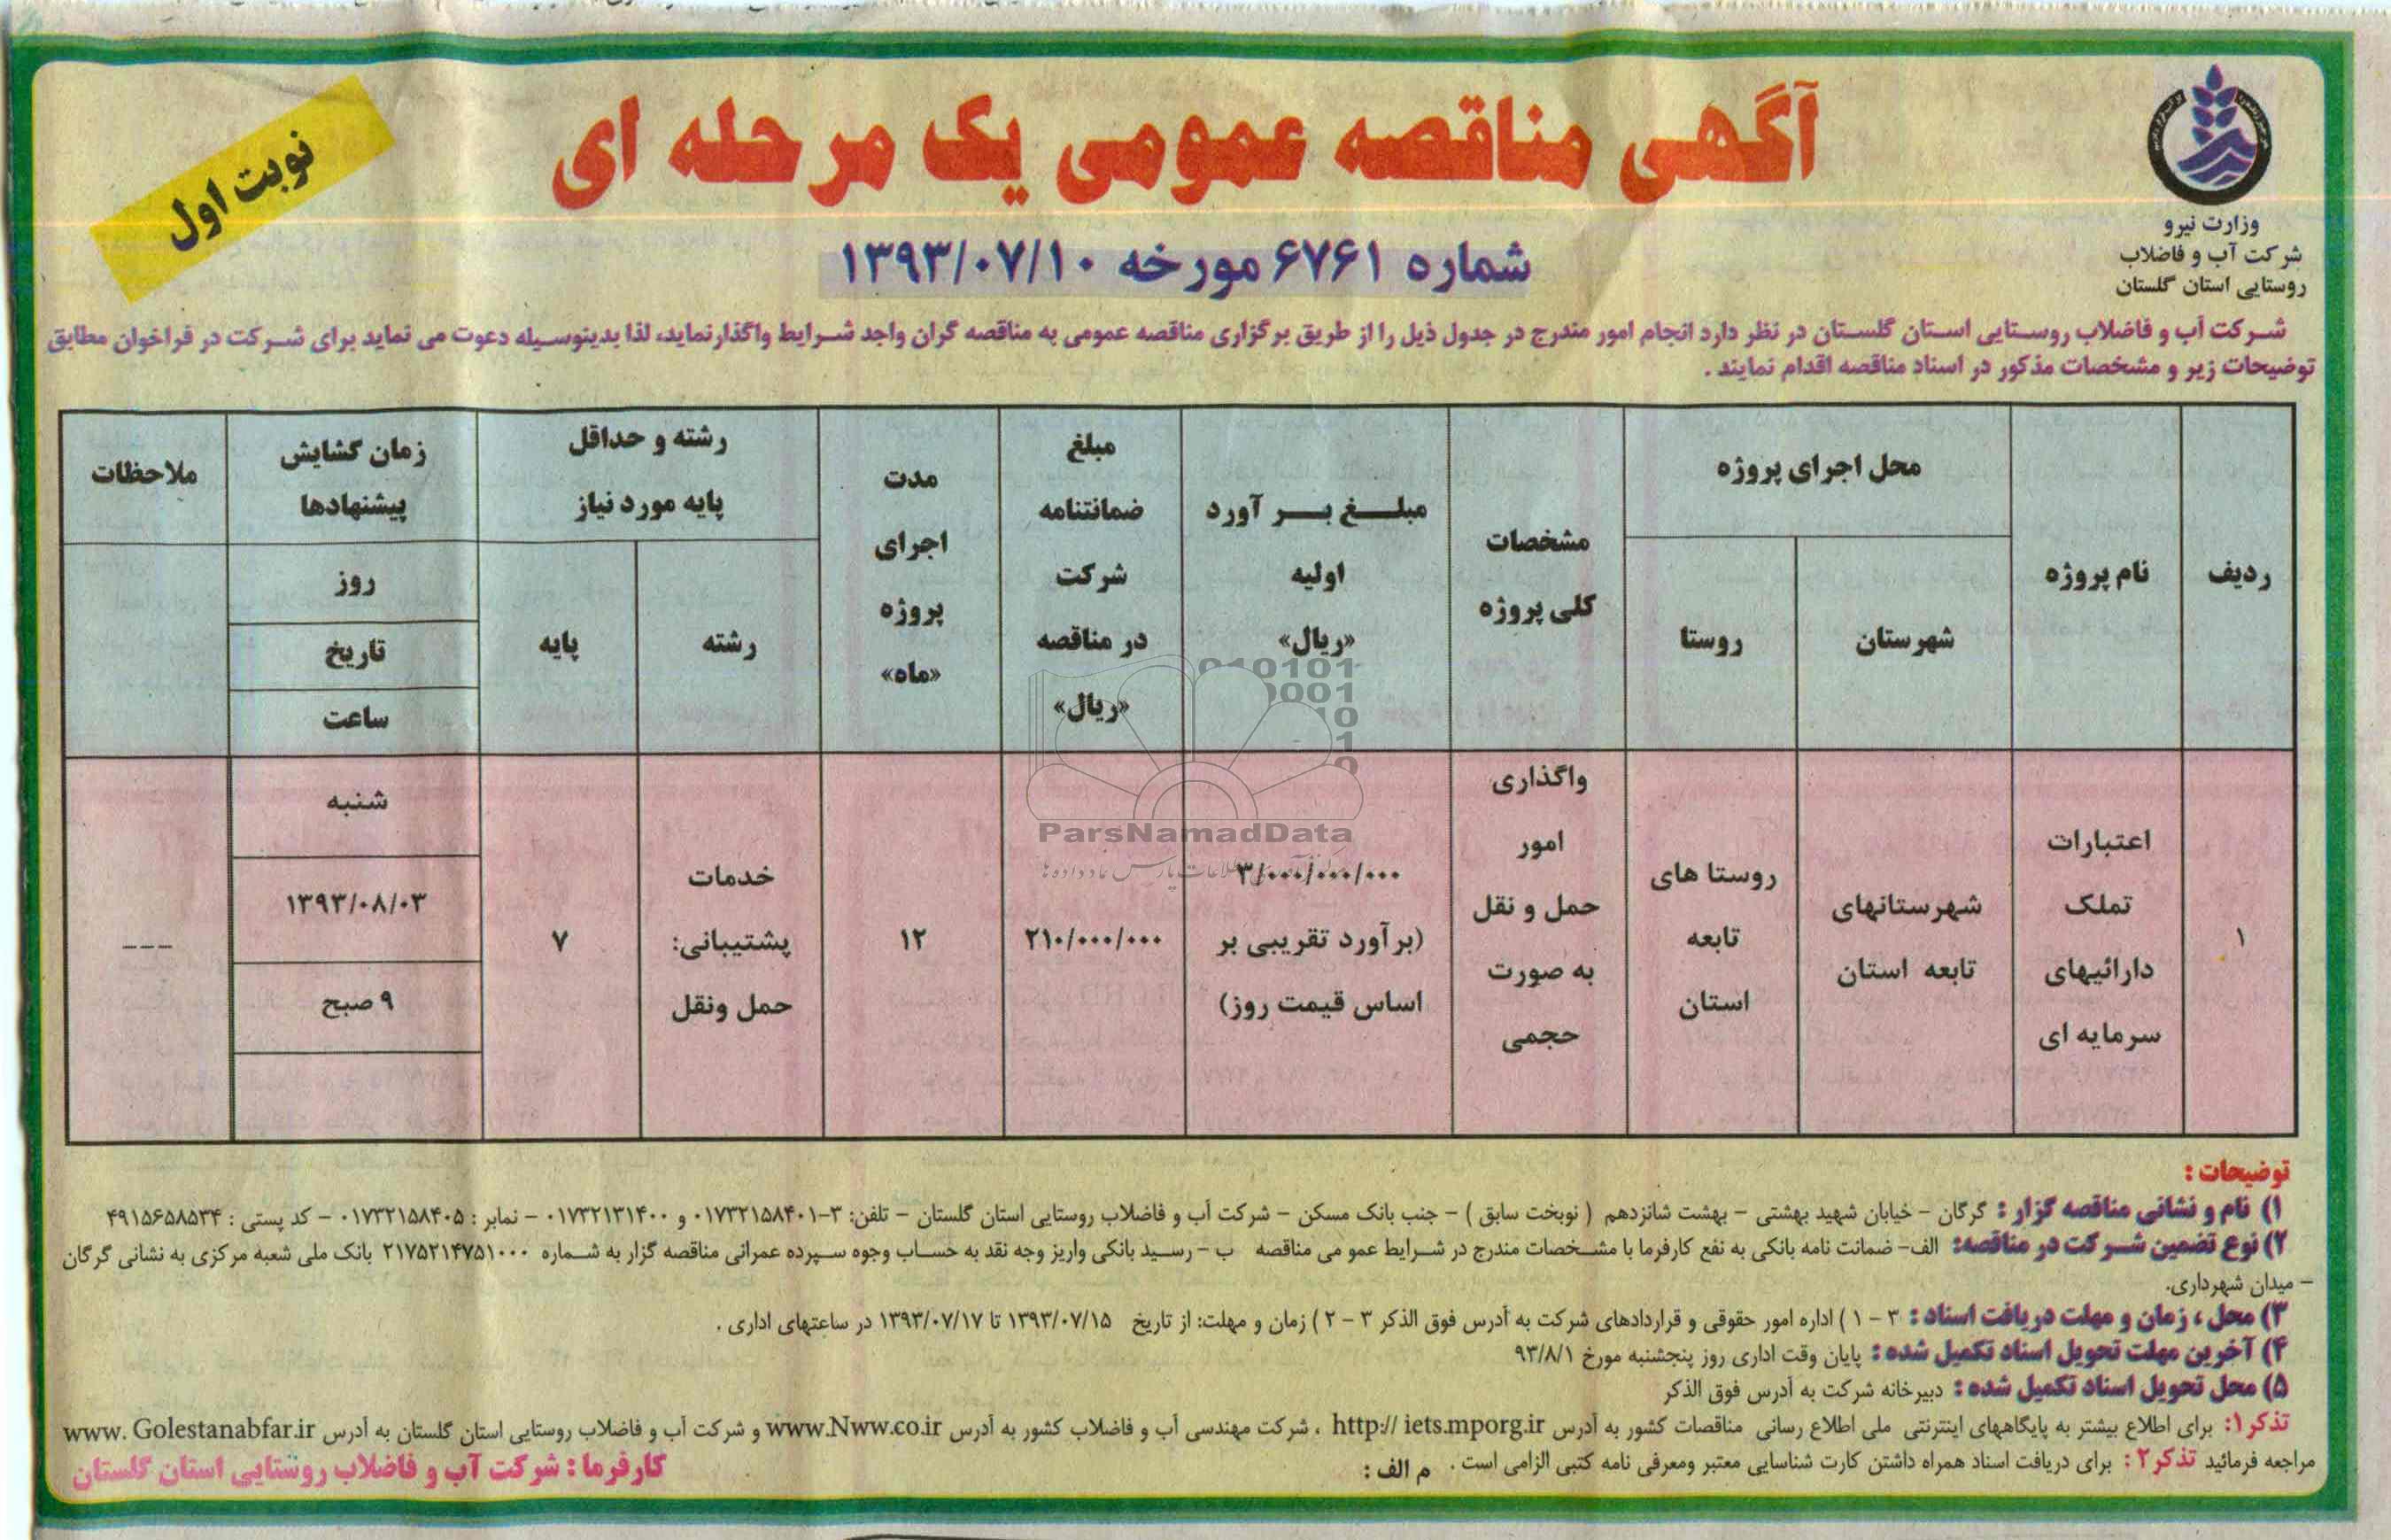 آگهی مناقصه عمومی یک مرحله ای
نوبت اول
شماره ۶۷۶۱ مورخه ۱۳۹۳/۰۷/۱۰
وزارت نیرو
شرکت آب و فاضلاب
روستایی استان گلستان
شرکت آب و فاضلاب روستایی استان گلستان در نظر دارد انجام امور مندرج در جدول ذیل را از طریق برگزاری مناقصه عمومی به مناقصه گران واجد شرایط واگذارنماید، لذا بدینوسیله دعوت می نماید برای شرکت در فراخوان مطابق
توضیحات زیر و مشخصات مذکور در اسناد مناقصه اقدام نمایند .
ردیف
نام پروژه
محل اجرای پروژه
شهرستان
روستا
مشخصات
کلی پروژه
مبلغ بر آورد
اولیه
«ریال»
مبلغ
ضمانتنامه
شرکت
در مناقصه
«ریال»
مدت
اجرای
پروژه
«ماه»
رشته و حداقل
پایه مورد نیاز
رشته
پایه
زمان گشایش
پیشنهادها
روز
تاریخ
ساعت
ملاحظات
۱
اعتبارات
تملک
دارائیهای
سرمایه ای
شهرستانهای
تابعه استان
روستا های
تابعه
استان
واگذاری
امور
حمل و نقل
به صورت
حجمی
۳/۰۰۰/۰۰۰/۰۰۰
(برآورد تقریبی بر
اساس قیمت روز)
۲۱۰/۰۰۰/۰۰۰
۱۲
خدمات
پشتیبانی:
حمل ونقل
۷
شنبه
۱۳۹۳/۰۸/۰۳
۹ صبح
---
ParsNamadData
توضیحات :
۱) نام و نشانی مناقصه گزار : گرگان - خیابان شهید بهشتی - بهشت شانزدهم ( نوبخت سابق ) - جنب بانک مسکن - شرکت آب و فاضلاب روستایی استان گلستان - تلفن: ۳-۰۱۷۳۲۱۵۸۴۰۱ و ۰۱۷۳۲۱۳۱۴۰۰ - نمابر : ۰۱۷۳۲۱۵۸۴۰۵ - کد پستی : ۴۹۱۵۶۵۸۵۳۴
۲) نوع تضمین شرکت در مناقصه: الف- ضمانت نامه بانکی به نفع کارفرما با مشخصات مندرج در شرایط عمو می مناقصه ب - رسید بانکی واریز وجه نقد به حساب وجوه سپرده عمرانی مناقصه گزار به شماره ۲۱۷۵۲۱۴۷۵۱۰۰۰ بانک ملی شعبه مرکزی به نشانی گرگان
- میدان شهرداری.
۳) محل ، زمان و مهلت دریافت اسناد : ۳ - ۱ ) اداره امور حقوقی و قراردادهای شرکت به آدرس فوق الذکر ۳ - ۲ ) زمان و مهلت: از تاریخ ۱۳۹۳/۰۷/۱۵ تا ۱۳۹۳/۰۷/۱۷ در ساعتهای اداری .
۴) آخرین مهلت تحویل اسناد تکمیل شده : پایان وقت اداری روز پنجشنبه مورخ ۹۳/۸/۱
۵) محل تحویل اسناد تکمیل شده : دبیرخانه شرکت به آدرس فوق الذکر
تذکر۱: برای اطلاع بیشتر به پایگاههای اینترنتی ملی اطلاع رسانی مناقصات کشور به آدرس http:// iets.mporg.ir ، شرکت مهندسی آب و فاضلاب کشور به آدرس www.Nww.co.ir و شرکت آب و فاضلاب روستایی استان گلستان به آدرس www. Golestanabfar.ir
مراجعه فرمائید تذکر۲ : برای دریافت اسناد همراه داشتن کارت شناسایی معتبر ومعرفی نامه کتبی الزامی است . م الف :
کارفرما : شرکت آب و فاضلاب روستایی استان گلستان